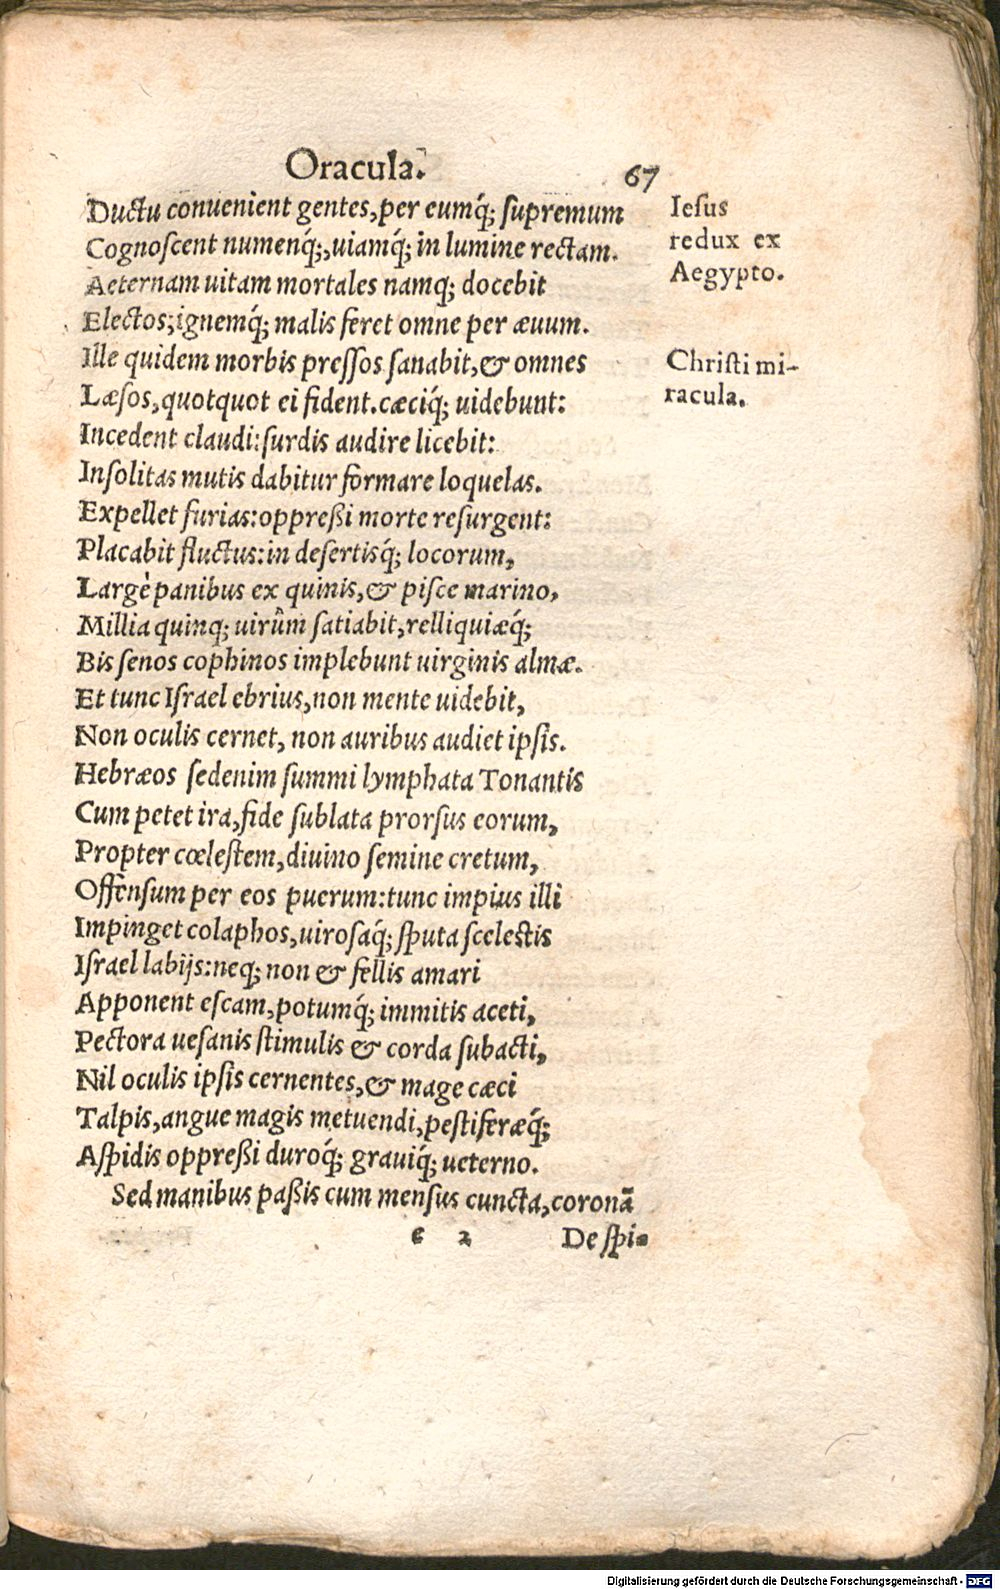 Oracula. 67
Ductu conuenient gentes, per eumq́; supremum
Cognoscent numenq́;, uiamq́; in lumine rectam.
Aeternam uitam mortales namq; docebit
Electos; ignemq́; malis feret omne per æuum.
Ille quidem morbis pressos sanabit, & omnes
Læsos, quotquot ei fident. cæciq́; uidebunt:
Incedent claudi: surdis audire licebit:
Insolitas mutis dabitur formare loquelas.
Expellet furias: oppreßi morte resurgent:
Placabit fluctus: in desertisq́; locorum,
Largè panibus ex quinis, & pisce marino,
Millia quinq; uirûm satiabit, relliquiæq́;
Bis senos cophinos implebunt uirginis almæ.
Et tunc Israel ebrius, non mente uidebit,
Non oculis cernet, non auribus audiet ipsis.
Hebræos sedenim summi lymphata Tonantis
Cum petet ira, fide sublata prorsus eorum,
Propter cœlestem, diuino semine cretum,
Offensum per eos puerum: tunc impius illi
Impinget colaphos, uirosaq́; sputa scelestis
Israel labijs: neq; non & fellis amari
Apponent escam, potumq́; immitis aceti,
Pectora uesanis stimulis & corda subacti,
Nil oculis ipsis cernentes, & mage cæci
Talpis, angue magis metuendi, pestiferæq́;
Aspidis oppreßi duroq́; grauiq́; ueterno.
Sed manibus paßis cum mensus cuncta, coronã
e 2 De spi-
Iesus
redux ex
Aegypto.
Christi mi-
racula.
Digitalisierung gefördert durch die Deutsche Forschungsgemeinschaft - DFG